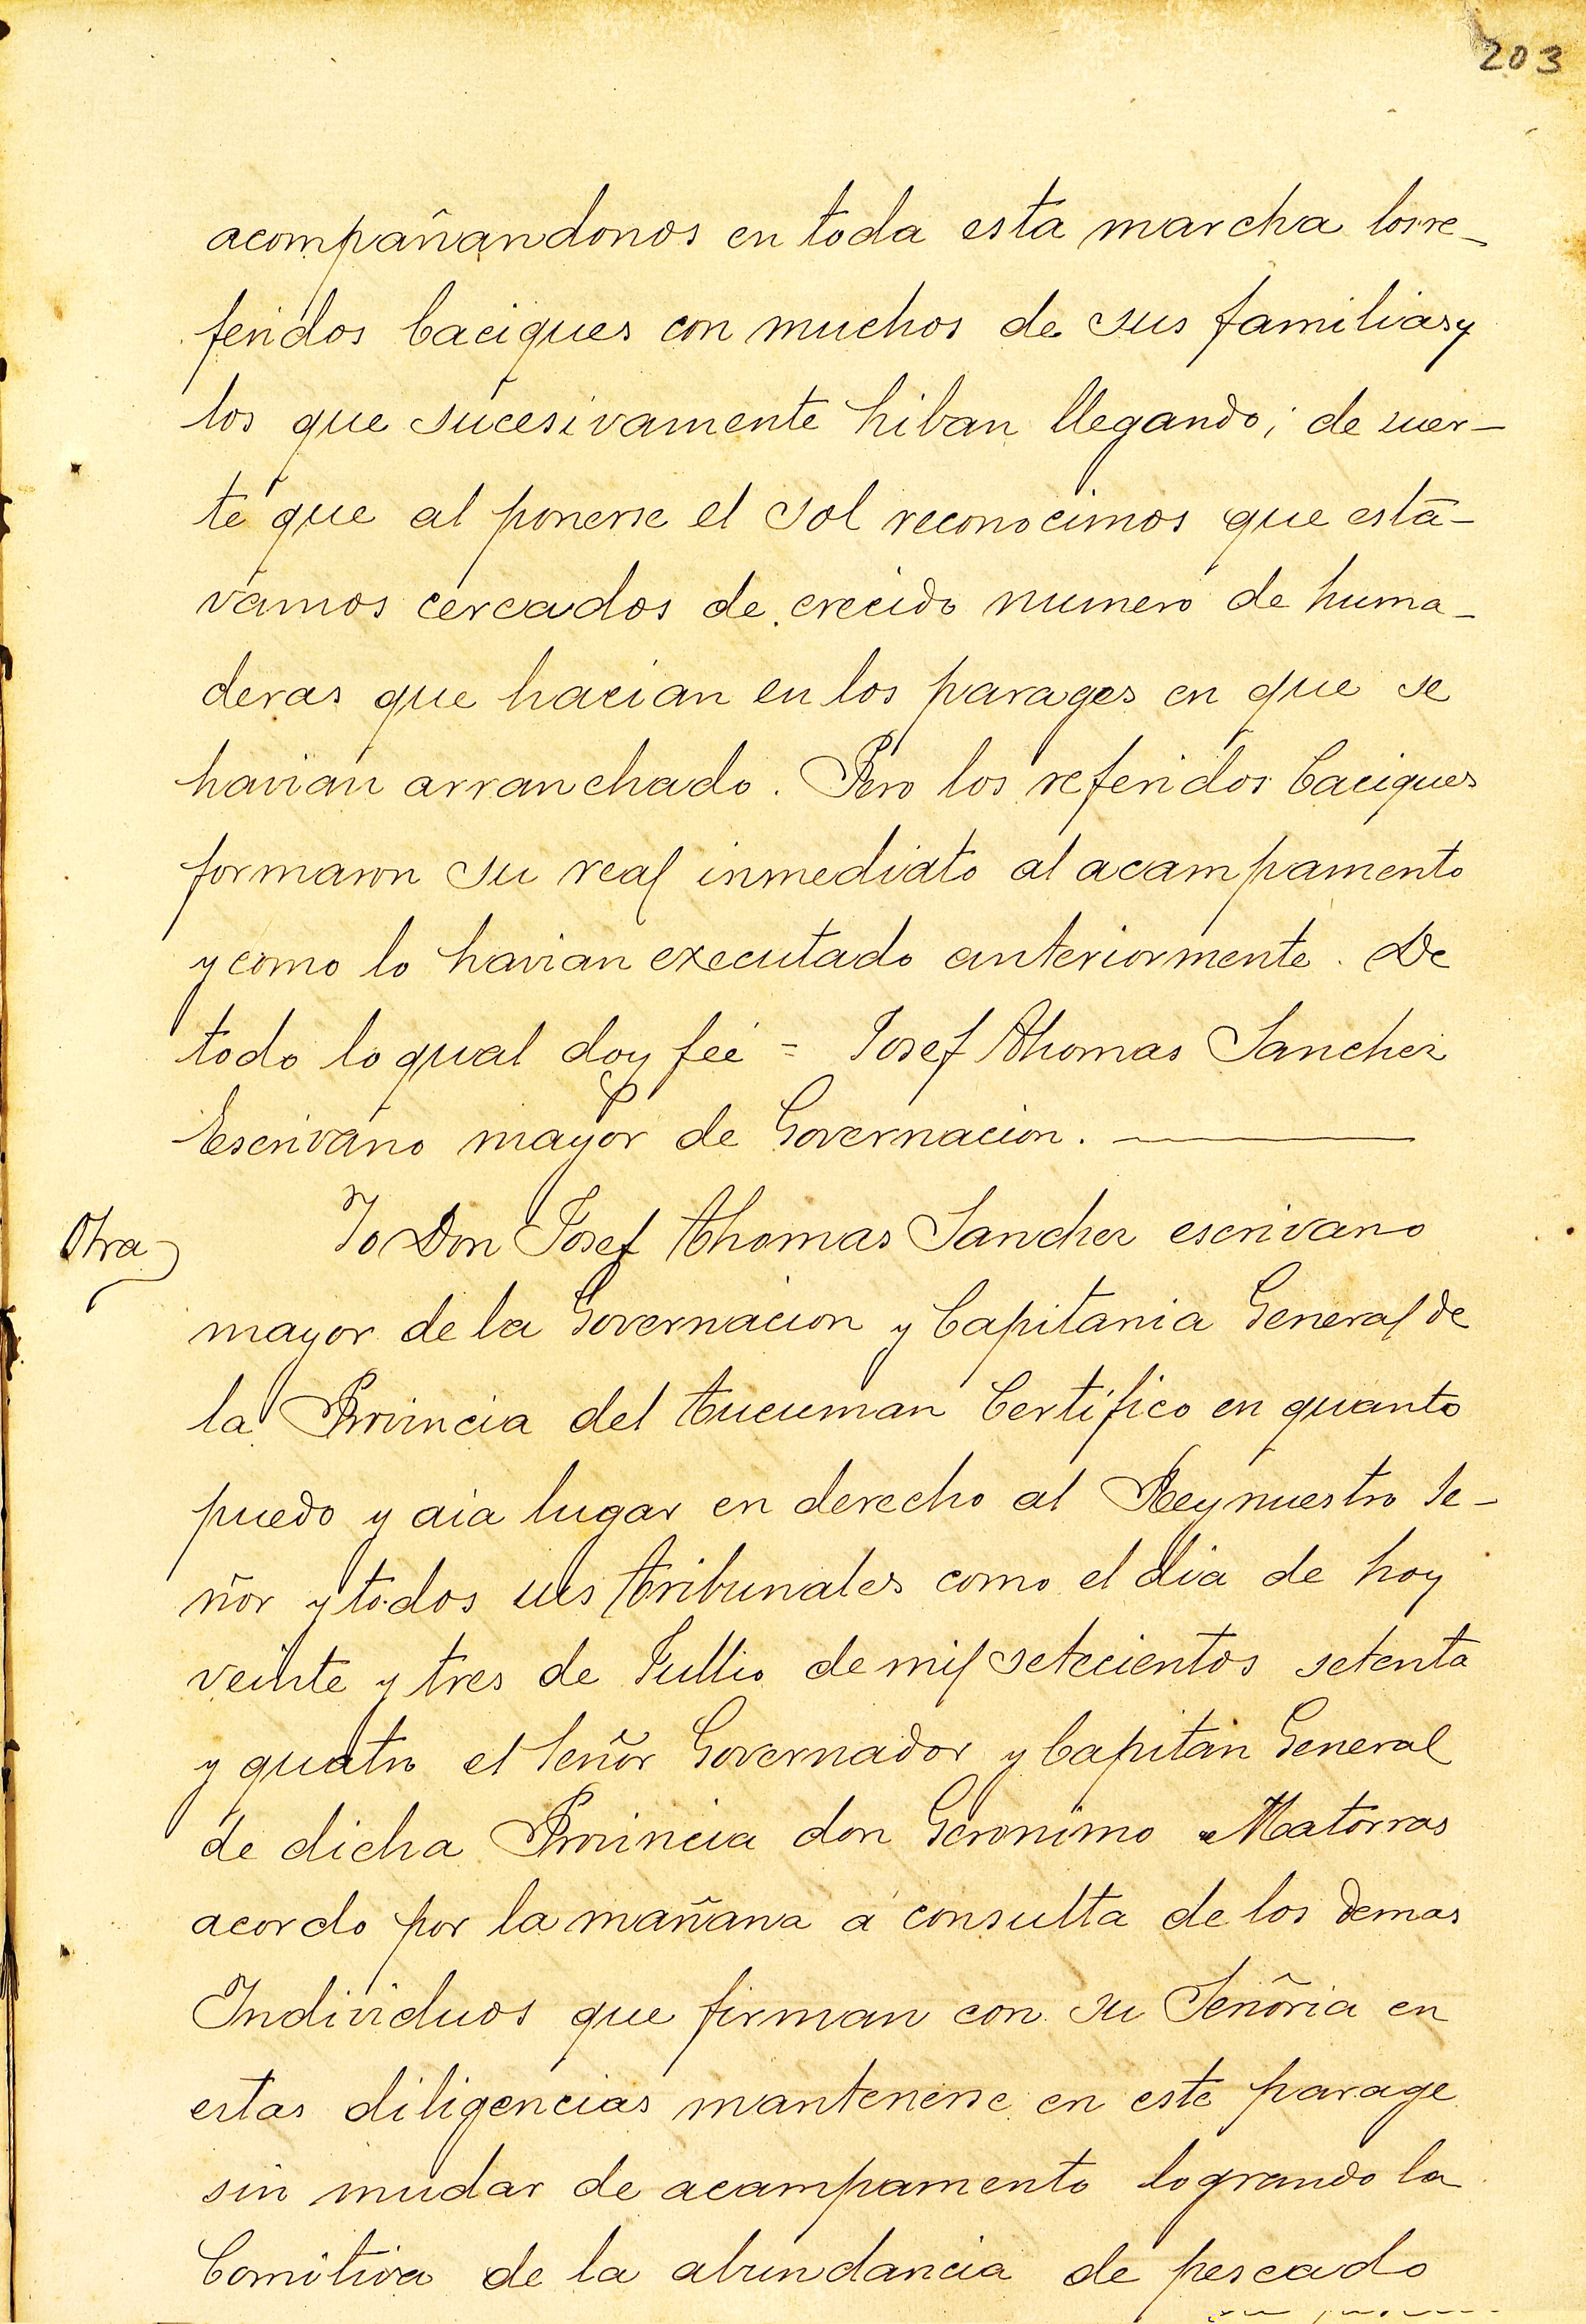 203
acompañandonos en toda esta marcha los re-
feridos Caciques con muchos de sus familias y
los que sucesivamente hiban llegando; de suer-
te que al ponerse el sol reconocimos que está-
vamos cercados de crecido numero de huma-
deras que hacian en los parages en que se
havian arranchado. Pero los referidos Caciques
formaron su real inmediato al acampamento
y como lo havian executado anteriormente. De
todo lo qual doy feé = Josef Thomas Sanchez
Escrivano mayor de Governacion.
Otra
Yo Don Josef Thomas Sanchez escrivano
mayor de la Governacion y Capitania General de
la Provincia del Tucuman Certifico en quanto
puedo y aia lugar en derecho al Rey nuestro Se-
ñor y todos sus tribunales como el dia de hoy
veinte y tres de Jullio de mil setecientos setenta
y quatro el Señor Governador y Capitan General
de dicha Provincia don Geronimo Matorras
acordo por la mañana á consulta de los demas
Individuos que firman con su Señoria en
estas diligencias mantenerse en este parage
sin mudar de acampamento logrando la
Comitiva de la abundancia de pescado